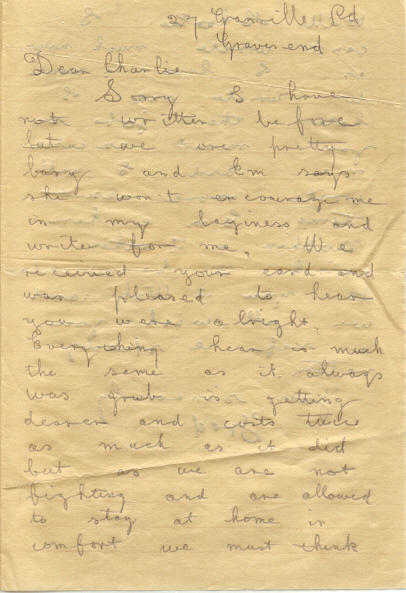 27 Granville Rd
Gravesend
Dear Charlie
Sorry I have
not written before
but we are pretty
busy and Em says
she won't encourage me
in my laziness and
write for me. We
received your card and
was pleased to hear
you were alright.
Everything hear is much
the same as it always
was grub is getting
dearer and costs twice
as much as it did
but as we are not
fighting and are allowed
to stay at home in
comfort we must think